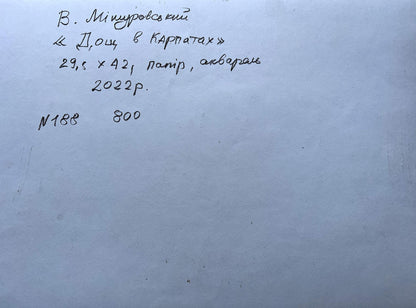 В. Мішуровський
« Дощ в Карпатах»
29,5 х 42, папір, акварель
2022р.
№188 800